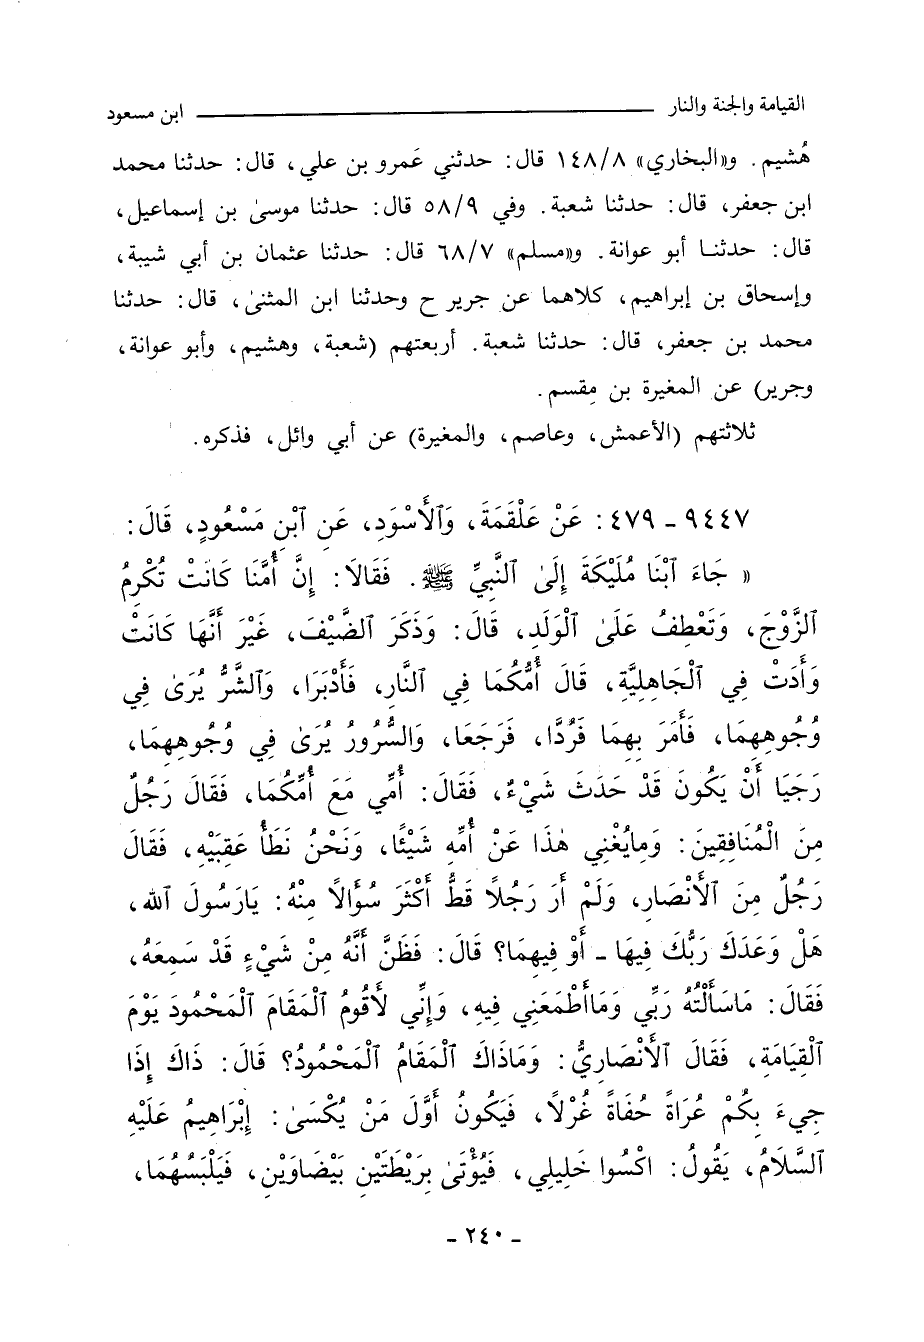 القيامة والجنة والنار ــــــــــــ ابن مسعود
هُشيم. و«البخاري» ١٤٨/٨ قال: حدثني عَمرو بن علي، قال: حدثنا محمد
ابن جعفر، قال: حدثنا شعبة. وفي ٥٨/٩ قال: حدثنا موسىٰ بن إسماعيل،
قال: حدثنا أبو عوانة. و«مسلم» ٦٨/٧ قال: حدثنا عثمان بن أبي شيبة،
وإسحاق بن إبراهيم، كلاهما عن جرير ح وحدثنا ابن المثنىٰ، قال: حدثنا
محمد بن جعفر، قال: حدثنا شعبة. أربعتهم (شعبة، وهشيم، وأبو عوانة،
وجرير) عن المغيرة بن مِقسم.
ثلاثتهم (الأعمش، وعاصم، والمغيرة) عن أبي وائل، فذكره.
٩٤٤٧ - ٤٧٩: عَنْ عَلْقَمَةَ، وَٱلأَسْوَدِ، عَنِ ٱبْنِ مَسْعُودٍ، قَالَ:
« جَاءَ ٱبْنَا مُلَيْكَةَ إِلَىٰ ٱلنَّبِيِّ ﷺ. فَقَالاَ: إِنَّ أُمَّنَا كَانَتْ تُكْرِمُ
ٱلزَّوْجَ، وَتَعْطِفُ عَلَىٰ ٱلْوَلَدِ، قَالَ: وَذَكَرَ ٱلضَّيْفَ، غَيْرَ أَنَّهَا كَانَتْ
وَأَدَتْ فِي ٱلْجَاهِلِيَّةِ، قَالَ أُمُّكُمَا فِي ٱلنَّارِ، فَأَدْبَرَا، وَٱلشَّرُّ يُرَىٰ فِي
وُجُوهِهِمَا، فَأَمَرَ بِهِمَا فَرُدَّا، فَرَجَعَا، وَٱلسُّرُورُ يُرَىٰ فِي وُجُوهِهِمَا،
رَجَيَا أَنْ يَكُونَ قَدْ حَدَثَ شَيْءٌ، فَقَالَ: أُمِّي مَعَ أُمِّكُمَا، فَقَالَ رَجُلٌ
مِنَ ٱلْمُنَافِقِينَ: وَمايُغْنِي هٰذَا عَنْ أُمِّهِ شَيْئًا، وَنَحْنُ نَطَأُ عَقِبَيْهِ، فَقَالَ
رَجُلٌ مِنَ ٱلأَنْصَارِ، وَلَمْ أَرَ رَجُلاً قَطُّ أَكْثَرَ سُؤَالاً مِنْهُ: يَارَسُولَ ٱلله،
هَلْ وَعَدَكَ رَبُّكَ فِيهَا - أَوْ فِيهِمَا؟ قَالَ: فَظَنَّ أَنَّهُ مِنْ شَيْءٍ قَدْ سَمِعَهُ،
فَقَالَ: مَاسَأَلْتُهُ رَبِّي وَمَاأَطْمَعَنِي فِيهِ، وَإِنِّي لأَقُومُ ٱلْمَقَامَ ٱلْمَحْمُودَ يَوْمَ
ٱلْقِيَامَةِ، فَقَالَ ٱلأَنْصَارِيُّ: وَمَاذَاكَ ٱلْمَقَامُ ٱلْمَحْمُودُ؟ قَالَ: ذَاكَ إِذَا
جِيءَ بِكُمْ عُرَاةً حُفَاةً غُرْلاً، فَيَكُونُ أَوَّلَ مَنْ يُكْسَىٰ: إِبْرَاهِيمُ عَلَيْهِ
ٱلسَّلاَمُ، يَقُولُ: اكْسُوا خَلِيلِي، فَيُؤْتَىٰ بِرَيْطَتَيْنِ بَيْضَاوَيْنِ، فَيَلْبَسُهُمَا،
- ٢٤٠ -